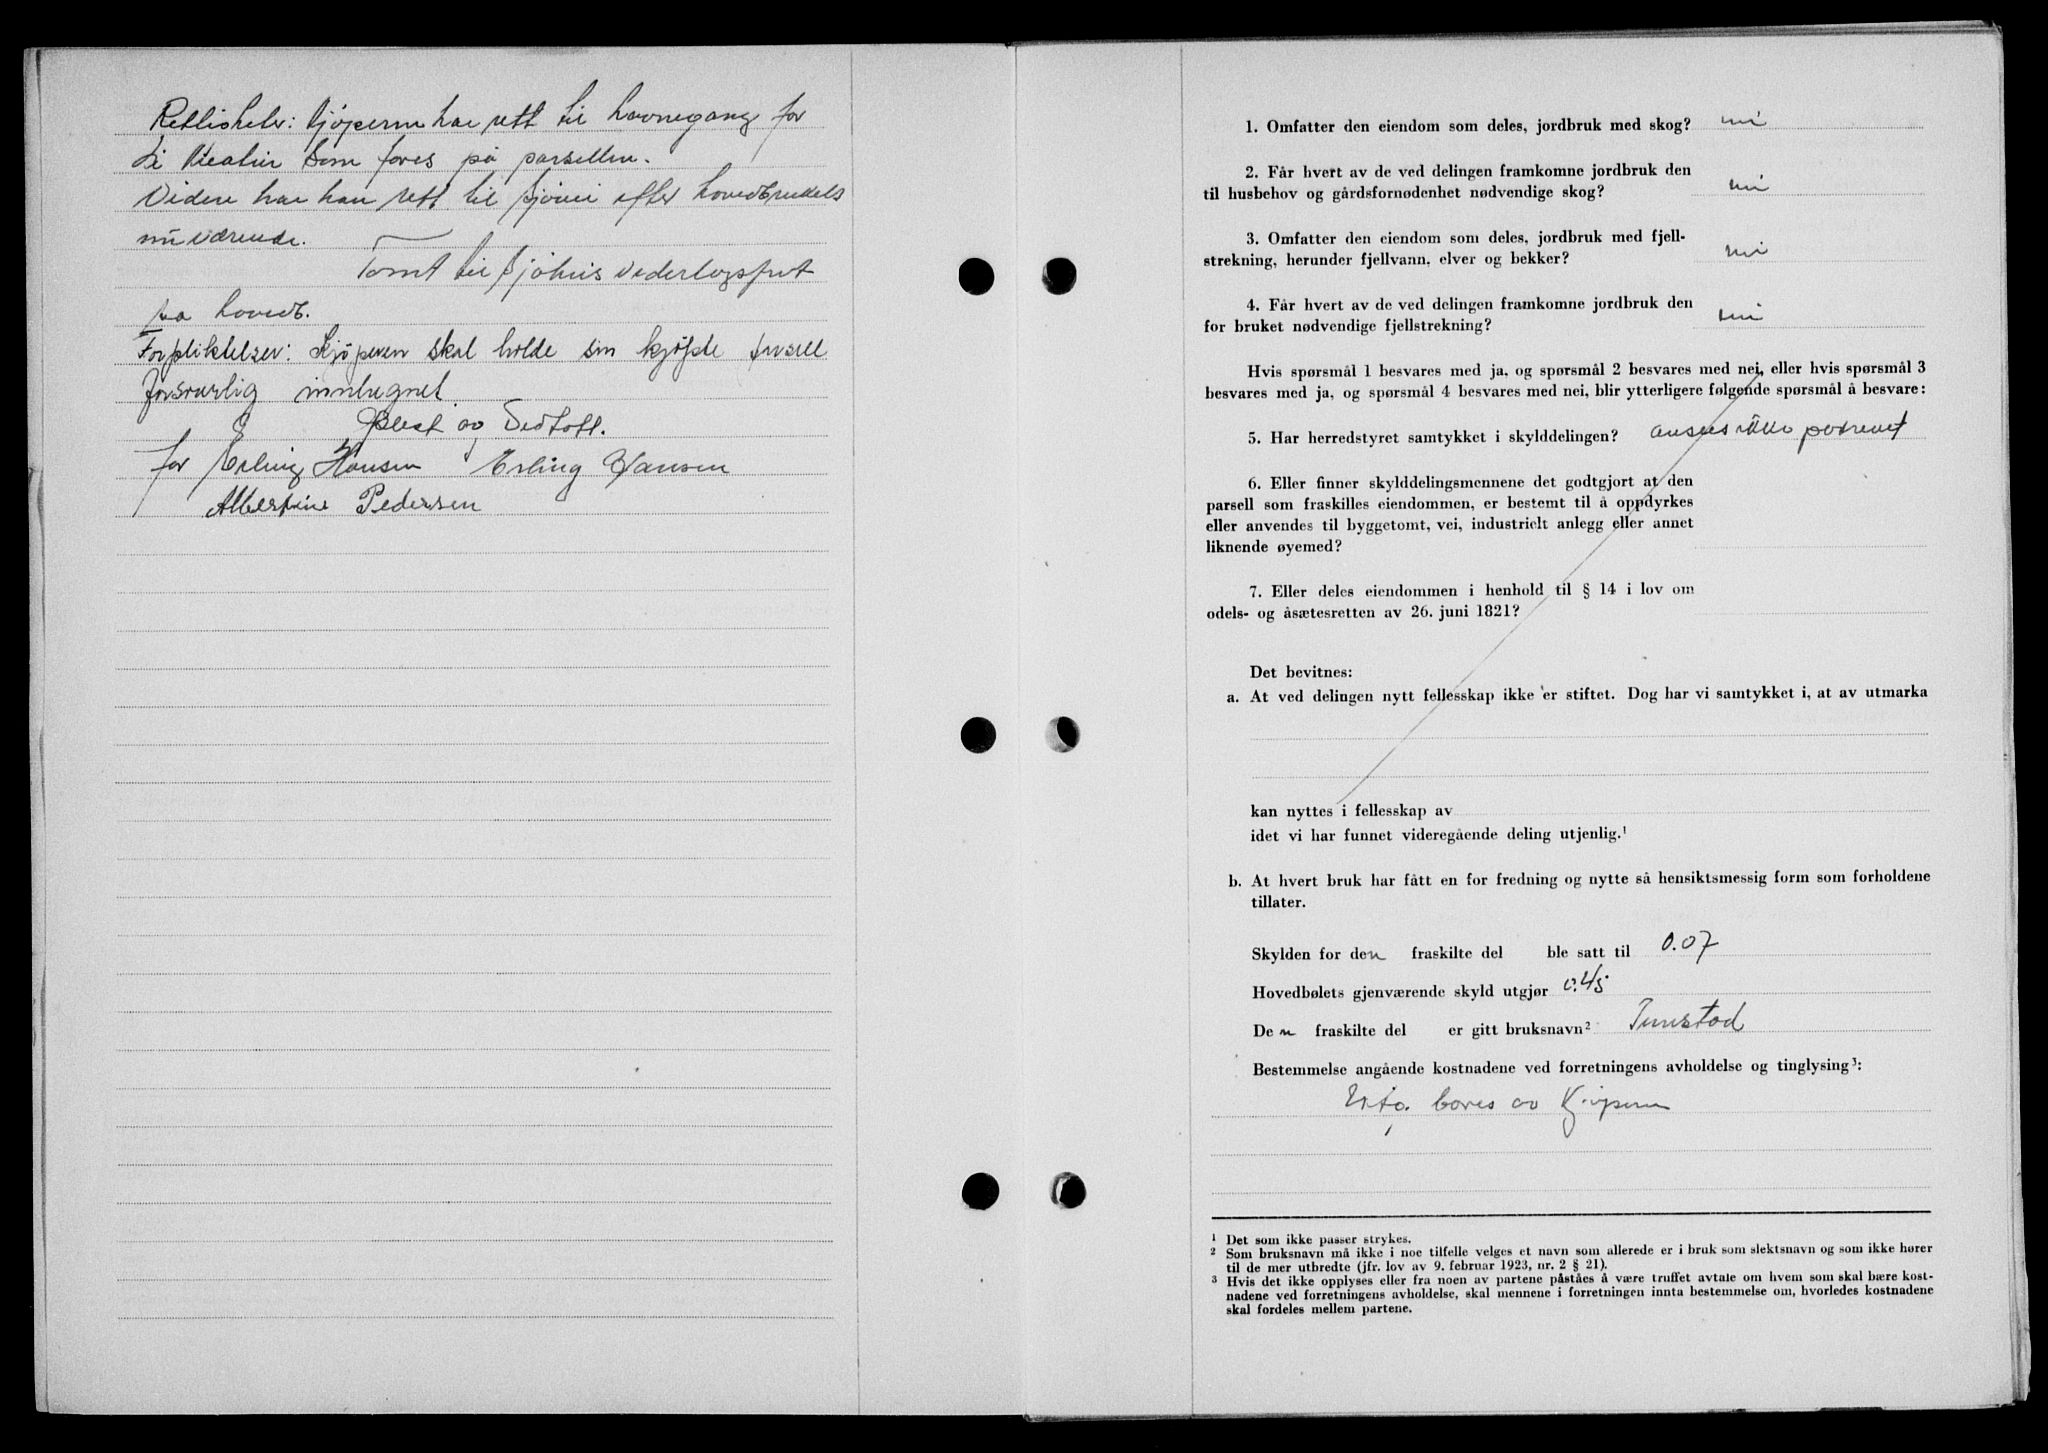 Rettigheter: Kjøperen har rett til havnegang for
de kreatur som fores på parsellen.
Videre har han rett til sjøvei efter hovedbrukets
nuværende.
Tomt til sjøhus vederlagsfrit
fra hovedb.
Forpliktelser: Kjøperen skal holde sin kjøpte parsell
forsvarlig inntegnet
og Vedtatt.
for Erling Hansen Erling Hansen
Albertine Pedersen
1. Omfatter den eiendom som deles, jordbruk med skog? nei
2. Får hvert av de ved delingen framkomne jordbruk den
til husbehov og gårdsfornødenhet nødvendige skog? nei
3. Omfatter den eiendom som deles, jordbruk med fjell-
strekning, herunder fjellvann, elver og bekker? nei
4. Får hvert av de ved delingen framkomne jordbruk den
for bruket nødvendige fjellstrekning? nei
Hvis spørsmål 1 besvares med ja, og spørsmål 2 besvares med nei, eller hvis spørsmål 3
besvares med ja, og spørsmål 4 besvares med nei, blir ytterligere følgende spørsmål å besvare:
5. Har herredstyret samtykket i skylddelingen? ansees ikke påkrevet
6. Eller finner skylddelingsmennene det godtgjort at den
parsell som fraskilles eiendommen, er bestemt til å oppdyrkes
eller anvendes til byggetomt, vei, industrielt anlegg eller annet
liknende øyemed?
7. Eller deles eiendommen i henhold til § 14 i lov om
odels- og åsætesretten av 26. juni 1821?
Det bevitnes:
a. At ved delingen nytt fellesskap ikke er stiftet. Dog har vi samtykket i, at av utmarka
kan nyttes i fellesskap av
idet vi har funnet videregående deling utjenlig.¹
b. At hvert bruk har fått en for fredning og nytte så hensiktsmessig form som forholdene
tillater.
Skylden for den fraskilte del ble satt til 0.07
Hovedbølets gjenværende skyld utgjør 0.45
Den fraskilte del er gitt bruksnavn² Tunstad
Bestemmelse angående kostnadene ved forretningens avholdelse og tinglysing³:
bæres av Kjøperen
¹ Det som ikke passer strykes.
² Som bruksnavn må ikke i noe tilfelle velges et navn som allerede er i bruk som slektsnavn og som ikke hører
til de mer utbredte (jfr. lov av 9. februar 1923, nr. 2 § 21).
³ Hvis det ikke opplyses eller fra noen av partene påståes å være truffet avtale om hvem som skal bære kost-
nadene ved forretningens avholdelse, skal mennene i forretningen innta bestemmelse om, hvorledes kostnadene
skal fordeles mellem partene.